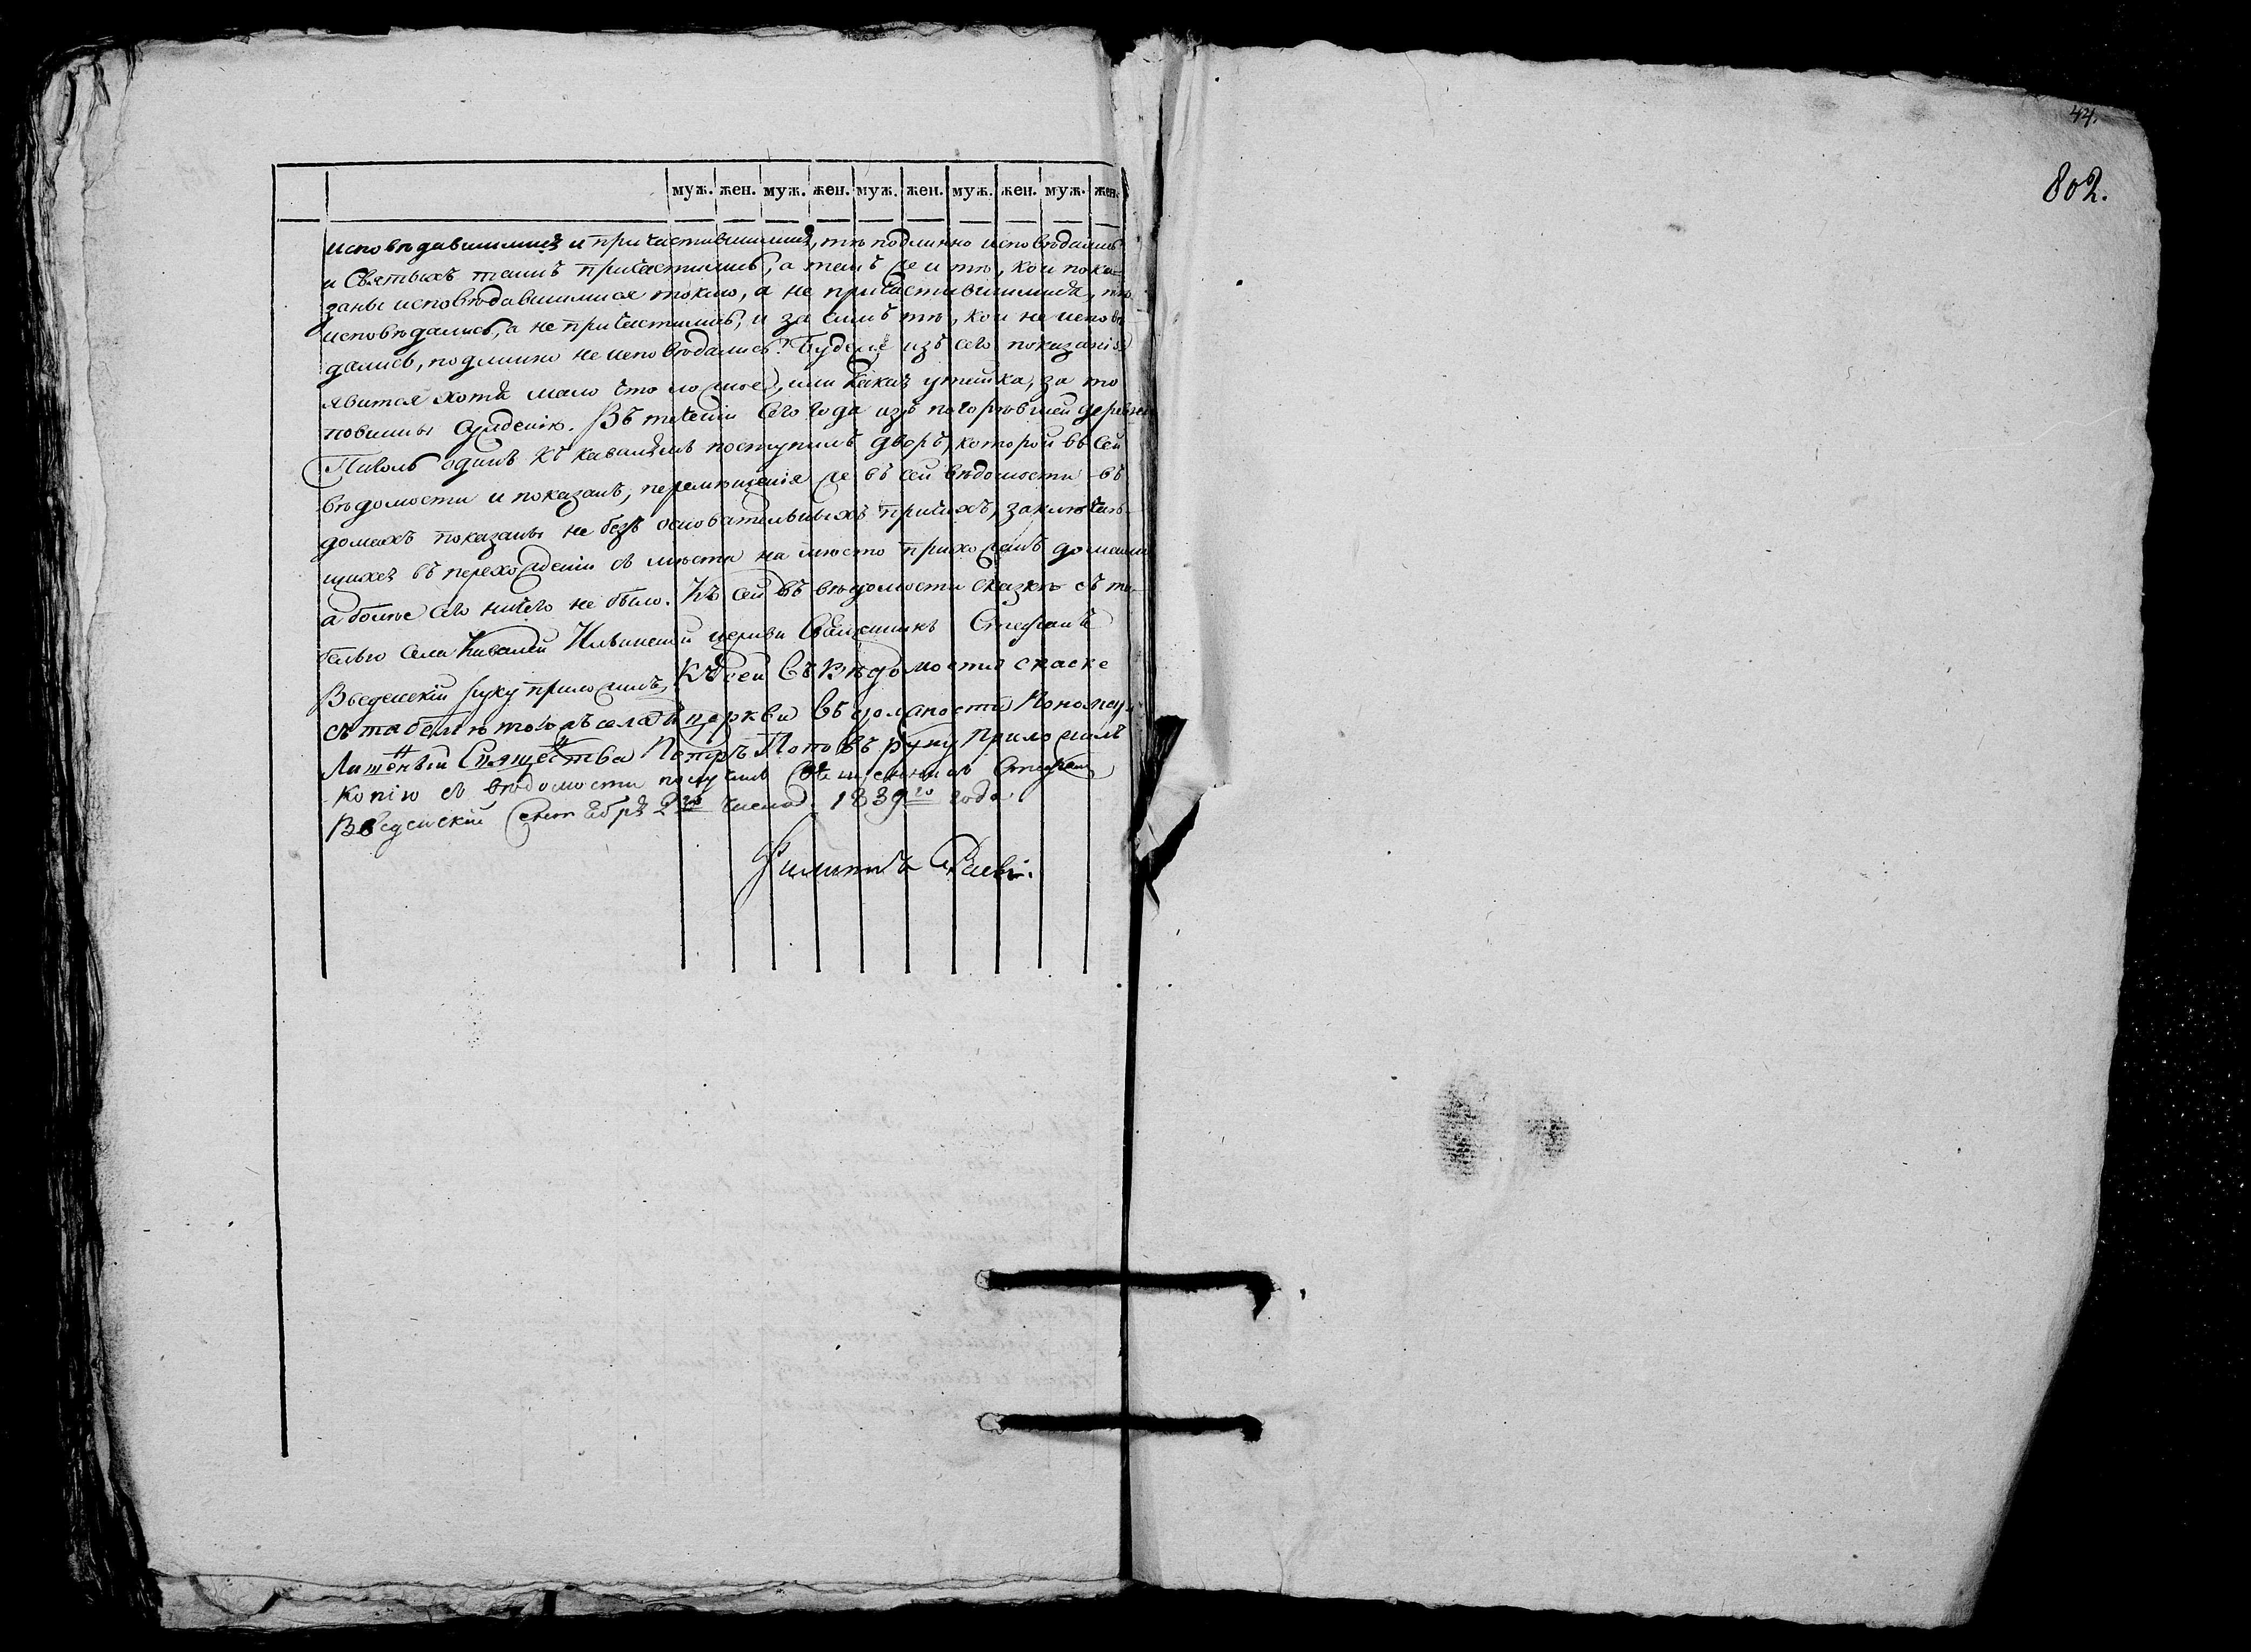 44.
802.
муж. жен. муж. жен. муж. жен. муж. жен. муж. жен.
исповѣдавшимися и причастившимися, тѣ подлинно исповѣдались
и Святыхъ таинъ причастились, а темъ же и тѣ, кои пока-
заны исповѣдавшимися токмо, а не причастившимися, тѣ
исповѣдались, а не причастились; и за симъ тѣ, кои не исповѣ
дались, подлинно не исповѣдались? Буде же изъ сего показанія
явится хотя мало что ложное, или какая утайка, за то
повинны сужденію. Въ теченіи сего года изъ погорѣвшей деревни
одинъ къ поступилъ дворъ, которой въ сей
вѣдомости и показанъ, перемѣщенія же въ сей вѣдомости въ
домахъ показаны не безъ основательныхъ причинъ, заключаю-
щихся въ перехожденіи съ мѣста на мѣсто прихожанъ домами
а болѣе сего ничего не было. Къ сей въ вѣдомости сказкѣ съ та-
белью села Ильинской церкви Священникъ Стефанъ
Введенскій руку приложилъ, Къ сей въ Вѣдомости скаске
съ табелью тогожъ села и церкви въ должности Пономаря
Лишенный Священства Петръ Поповъ руку приложилъ
Копію съ вѣдомости получилъ Священникъ Стефанъ
Введенскій 2го числа 1839го года
Филиппъ